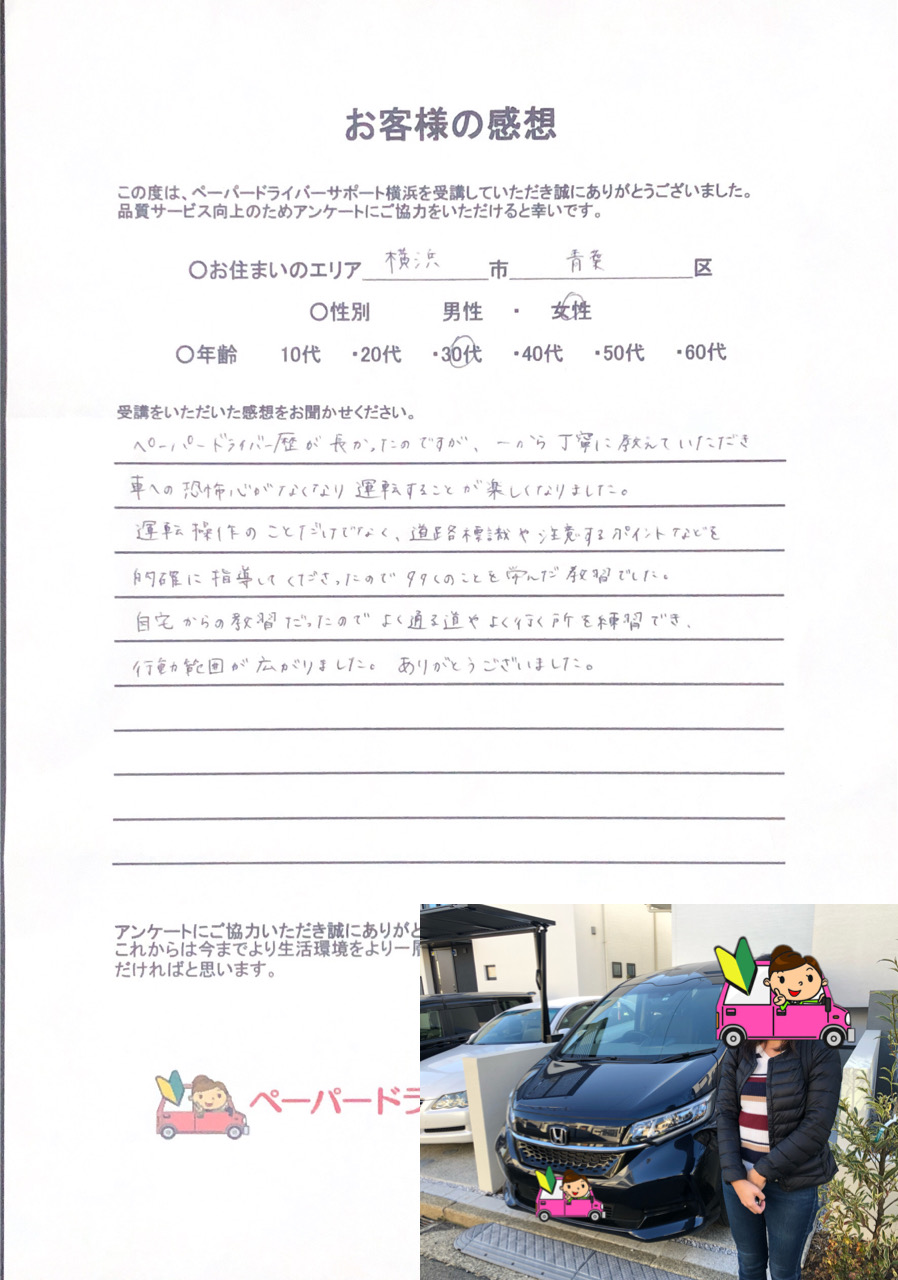 お客様の感想
この度は、ペーパードライバーサポート横浜を受講していただき誠にありがとうございました。
品質サービス向上のためアンケートにご協力をいただけると幸いです。
〇お住まいのエリア 横浜 市 青葉 区
〇性別 男性 ・ 女性
〇年齢 10代 ・20代 ・30代 ・40代 ・50代 ・60代
受講をいただいた感想をお聞かせください。
ペーパードライバー歴が長かったのですが、一から丁寧に教えていただき
車への恐怖心がなくなり運転することが楽しくなりました。
運転操作のことだけでなく、道路標識や注意するポイントなどを
的確に指導してくださったので多くのことを学んだ教習でした。
自宅からの教習だったのでよく通る道やよく行く所を練習でき、
行動範囲が広がりました。ありがとうございました。
アンケートにご協力いただき誠にありがと
これからは今までより生活環境をより一層
だければと思います。
ペーパードラ